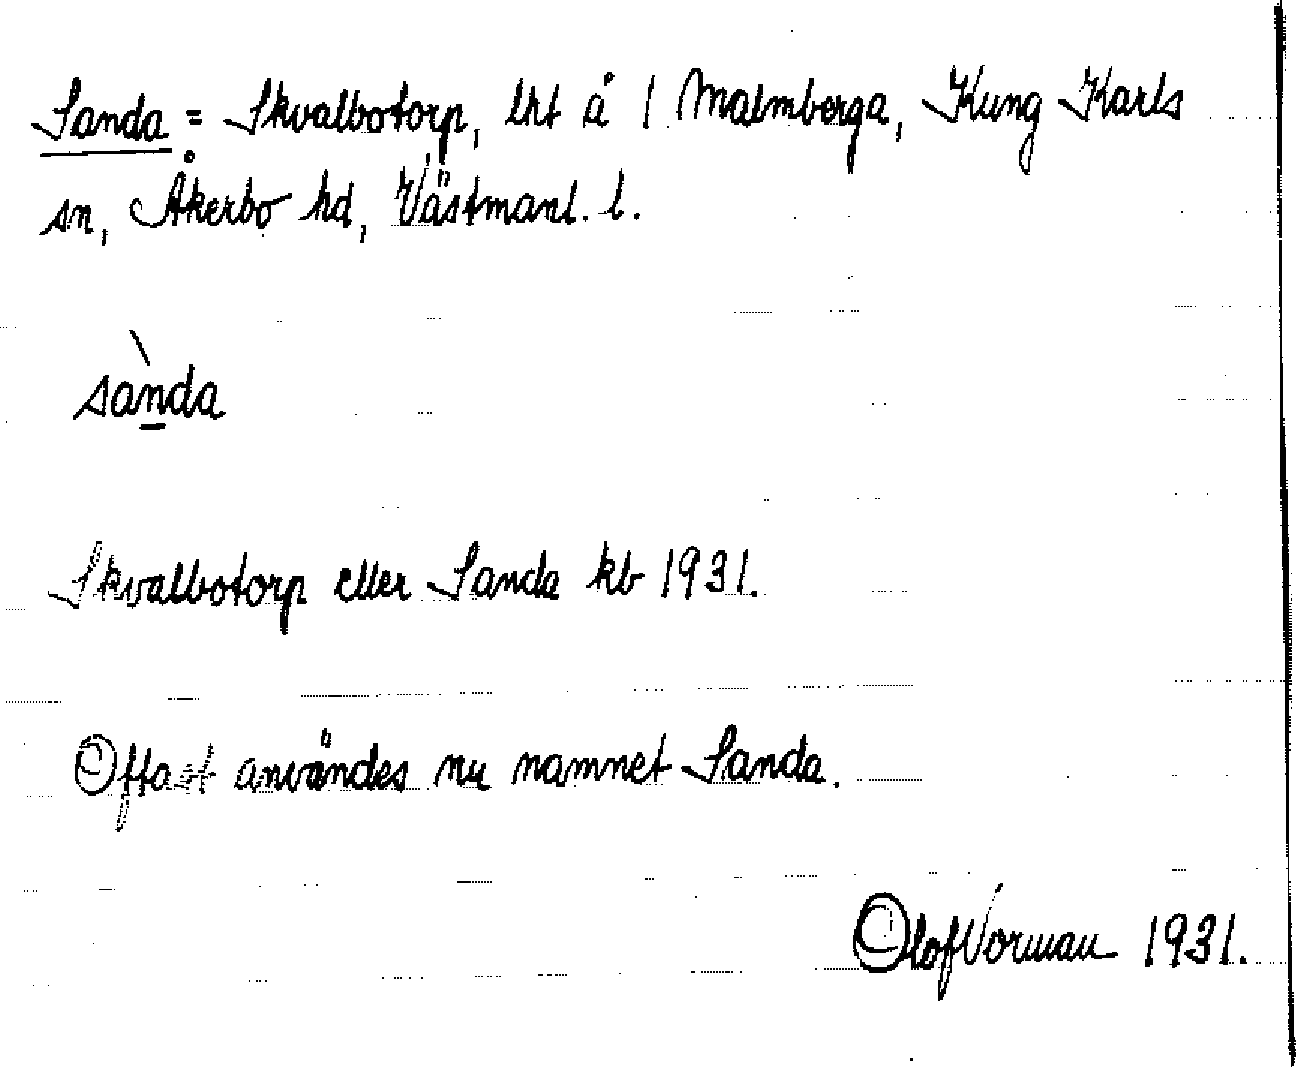 Sanda = Skvalbotorp, lht å 1 Malmberga, Kung Karls
sn, Åkerbo hd, Västmanl. l.
sànda
Skvalbotorp eller Sanda kb 1931.
Oftast användes nu namnet Sanda.
Olof Vorman 1931.